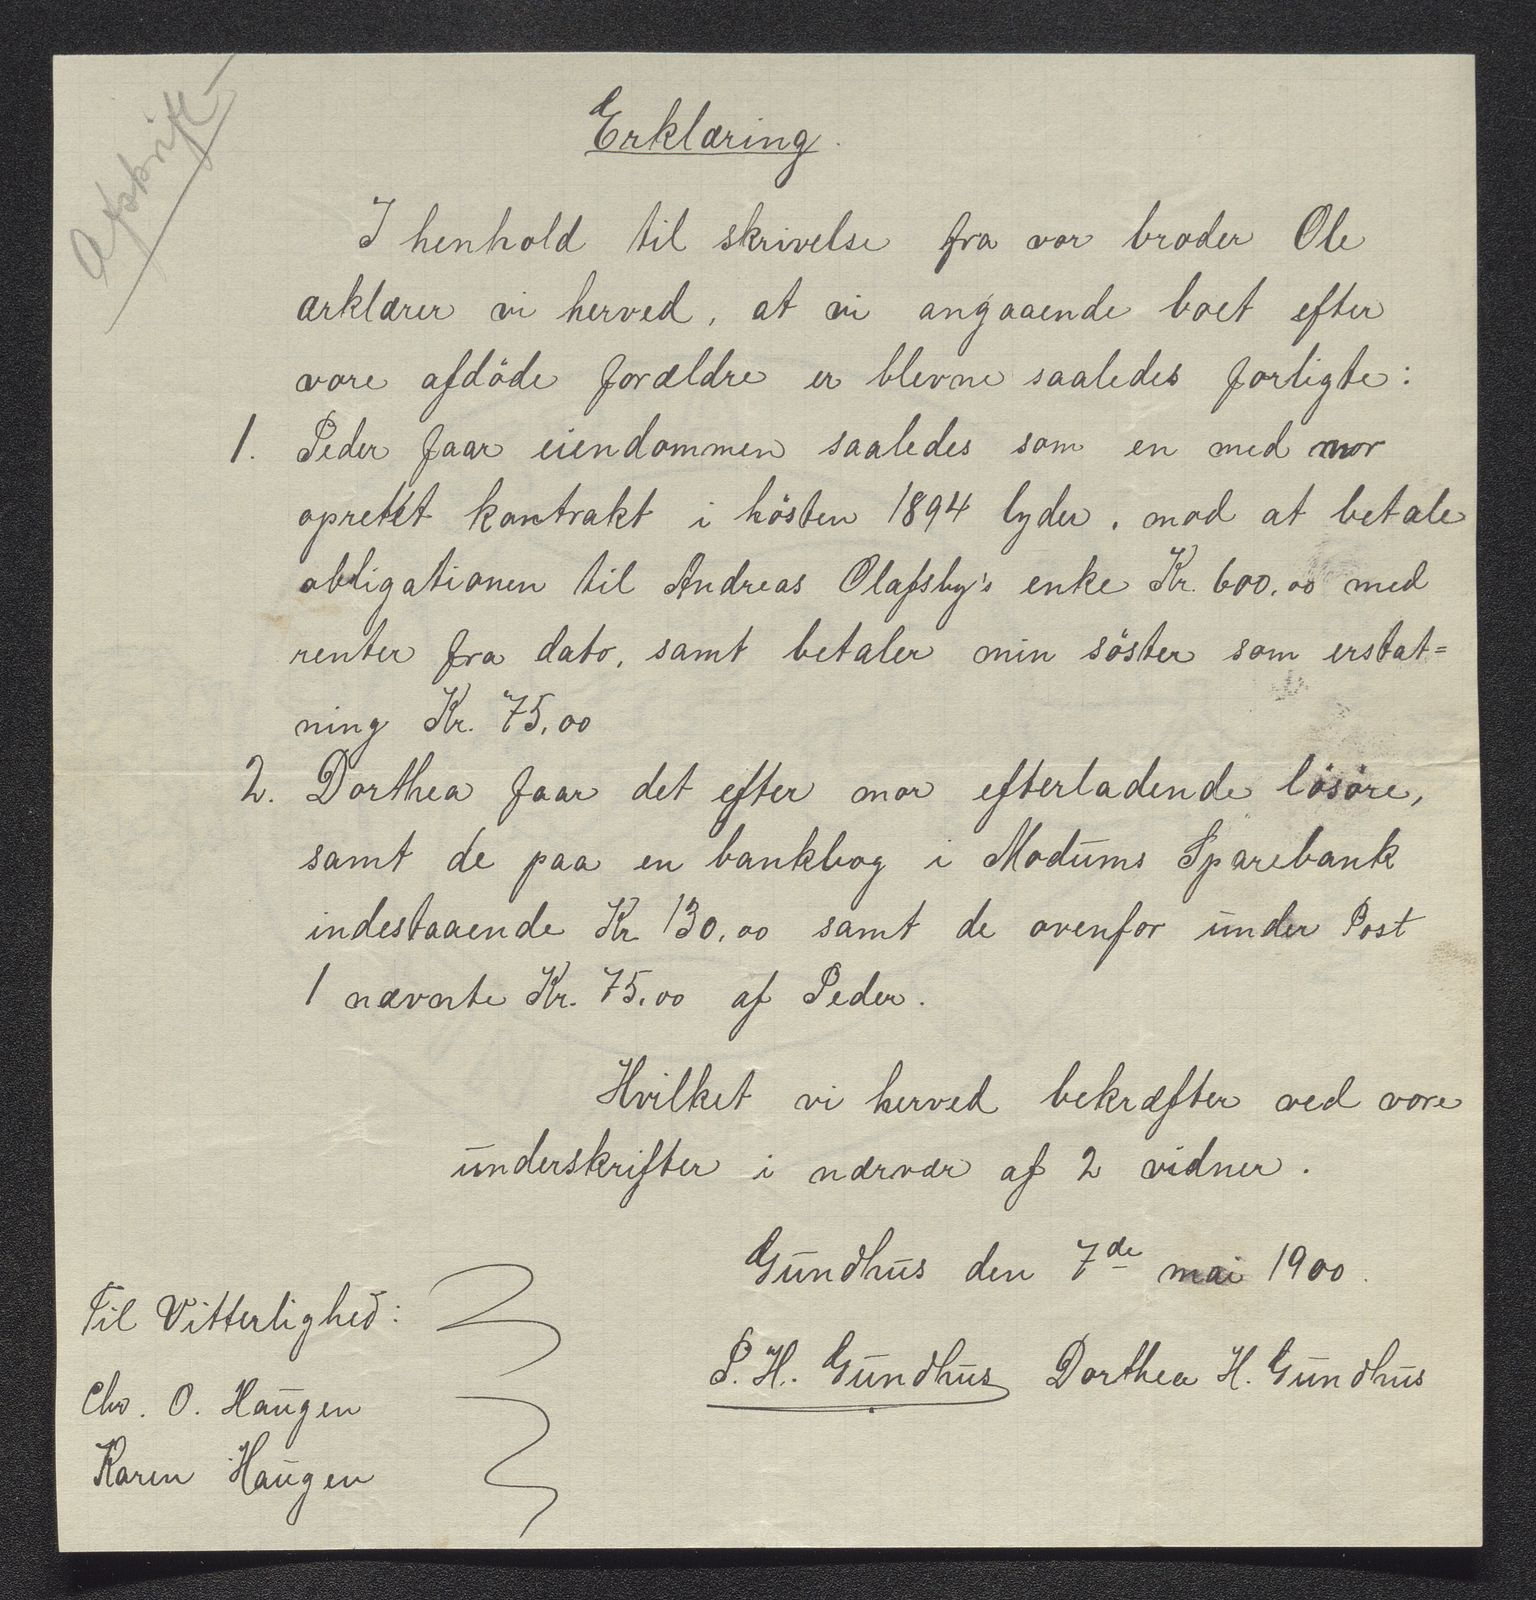 Afskrift
Erklæring.
I henhold til skrivelse fra vor broder Ole
ærklærer vi herved, at vi angaaende boet efter
vore afdöde forældre er blevne saaledes forligte:
1. Peder faar eiendommen saaledes som en med mor
oprettet kontrakt i hösten 1894 lyder, mod at betale
obligationen til Andreas Olafsby's enke Kr. 600,00 med
renter fra dato, samt betaler min söster som erstat=
ning Kr. 75,00
2. Dorthea faar det efter mor efterladende lösöre,
samt de paa en bankbog i Modums Sparebank
indestaaende Kr 130,00 samt de ovenfor under Post
1 nævnte Kr. 75,00 af Peder.
Hvilket vi herved bekræfter ved vore
underskrifter i nærvær af 2 vidner.
Gundhus den 7de mai 1900.
P. H. Gundhus Dorthea H. Gundhus
Til Vitterlighed:
Chr. O. Haugen
Karen Haugen